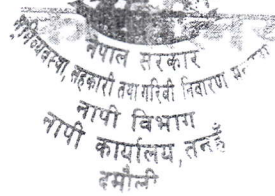 नेपाल सरकार
भूमिव्यवस्था, सहकारी तथा गरिबी निवारण मन्त्रालय
नापी विभाग
नापी कार्यालय, तनहुँ
दमौली